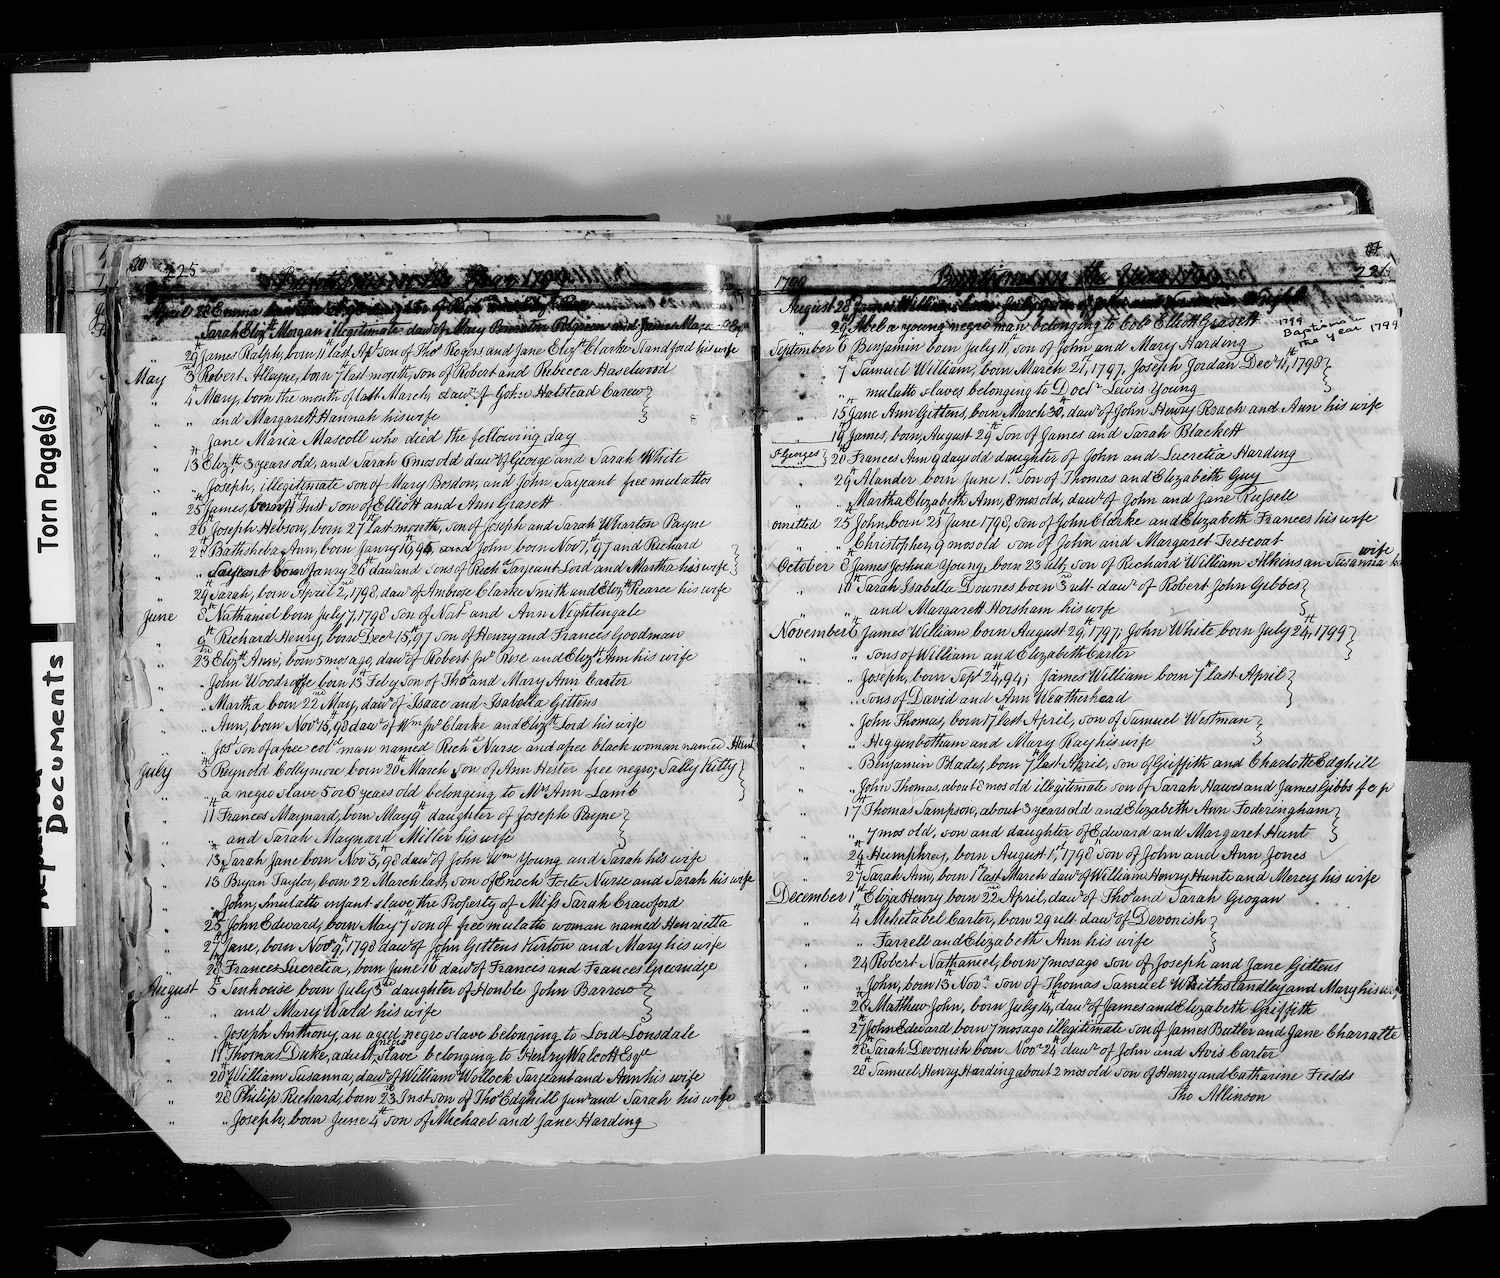 Torn Page(s)
Documents
20 225
Baptisms in the Year 1799
April 28 Emma
Sarah Elizth Morgan illegitimate dawr of Mary and James Maze
29th James Ralph, born 11th last Apl son of Thos Rogers and Jane Elizth Clarke Standford his wife
May 3rd Robert Allayne, born 7th last month, son of Robert and Rebecca Haselwood
" 4 Mary, born the month of last March, dawr of John Halstead Carew
" " and Margarett Hannah his wife
Jane Maria Mascoll who died the following day
" 13th Elizth 3 years old, and Sarah 6 mos old dawr of George and Sarah White
" " Joseph, illegitimate son of Mary Bordon, and John Sargeant free mulattos
" 25 James, born 1st Inst son of Elliott and Ann Grasett
" 26th Joseph Hebson, born 27th last month, son of Joseph and Sarah Wharton Payne
" 27 Bathsheba Ann, born Janry 19, 95, and John born Novr 1st, 97 and Richard
" " Sargeant born Janry 26th daw and sons of Richd Sargeant Lord and Martha his wife
" 29th Sarah, born April 2nd, 1798, dawr of Ambrose Clarke Smith and Elizth Pearce his wife
June 8th Nathaniel born July 7, 1798 son of Natl and Ann Nightingale
" 9th Richard Henry, born Decr 15th 97 son of Henry and Frances Goodman
" 23rd Elizth Ann, born 5 mos ago, dawr of Robert Junr Rose and Elizth Ann his wife
" " John Woodroffe born 13th Feby son of Thos and Mary Ann Carter
" " Martha born 22nd May, dawr of Isaac and Isabella Gittens
" " Ann, born Novr 15, 98 dawr of Wm Junr Clarke and Elizth Lord his wife
" " Jos son of a free cold man named Richd Nurse and a free black woman named
July 5th Reynold Collymore born 20th March, son of Ann Hester free negro; Sally Kitty
" " a negro slave 5 or 6 years old belonging to Mrs Ann Lamb
" 11th Frances Maynard, born May 9th daughter of Joseph Payne
" " and Sarah Maynard Miller his wife
" 13th Sarah Jane born Nov 3rd, 98 dawr of John Wm Young and Sarah his wife
" 13 Bryan Taylor, born 22 March last, son of Enoch Forte Nurse and Sarah his wife
" " John, mulatto infant slave the Property of Miss Sarah Crawford
" 25th John Edward, born May 7th son of free mulatto woman named Henrietta
" 27th Jane, born Novr 9th, 1798 dawr of John Gittens Kirton and Mary his wife
" 28th Frances Lucretia, born June 16th dawr of Francis and Frances Greenidge
August 5th Senhouse born July 3rd daughter of Honble John Barrow
" " and Mary Wald his wife
" Joseph Anthony, an aged negro slave belonging to Lord Lonsdale
" 11th Thomas Duke, adult negro slave belonging to Henry Walcott Esqr
" 20th William Susanna, dawr of William Wollock Sargeant and Ann his wife
" 28 Philip Richard, born 23 Inst son of Thos Edghill Junr and Sarah his wife
" " Joseph, born June 4th son of Michael and Jane Harding
1799 Baptisms in the Year 1799 226
August 28 James William born
" 29th Abel a young negro man belonging to Cole Elliott Grasett
1799 Baptisms in the year 1799
September 6 Benjamin born July 11th, son of John and Mary Harding
" 7th Samuel William, born March 21st, 1797, Joseph Jordan Decr 11th, 1798
" " mulatto slaves belonging to Doctr Lewis Young
" 15th Jane Ann Gittens, born March 30th, dawr of John Henry Roach and Ann his wife
" 19 James, born August 29th Son of James and Sarah Blackett
St Georges 20th Frances Ann 9 days old daughter of John and Lucretia Harding
" 29th Alander born June 1st Son of Thomas and Elizabeth Guy
" " Martha Elizabeth Ann, 8 mos old, dawr of John and Jane Russell
omitted 25 John, born 21st June 1798, son of John Clarke and Elizabeth Frances his wife
" " Christopher, 9 mos old son of John and Margaret Trescoat
October 8th James Joshua Young, born 23 ult, son of Richard William Atkins an Susanna his wife
" 10th Sarah Isabella Downes born 3rd ult dawr of Robert John Gibbes
" " and Margarett Horsham his wife
November 6th James William born August 29th, 1797; John White born July 24th, 1799
" " sons of William and Elizabeth Carter
" " Joseph, born Sept 24th, 94; James William born 7th last April
" " sons of David and Ann Weatherhead
" " John Thomas, born 17th last April, son of Samuel Westman
" " Higginbotham and Mary Ray his wife
" " Benjamin Blades, born 7th last April, son of Griffith and Charlotte Edghill
" " John Thomas, about 8 mos old illegitimate son of Sarah Hawes and James Gibbs f o p
" 17th Thomas Sampson, about 3 years old and Elizabeth Ann Foderingham
" " 7 mos old, son and daughter of Edward and Margaret Hunt
" 24th Humphrey, born August 1st, 1798, son of John and Ann Jones
" 27th Sarah Ann, born 1st last March dawr of William Henry Hunte and Mercy his wife
December 1st Eliza Henry, born 22nd April, dawr of Thos and Sarah Grogan
" 4th Mehetabel Carter, born 29 ult dawr of Devonish
" " Farrell and Elizabeth Ann his wife
" 24 Robert Nathaniel, born 7 mos ago son of Joseph and Jane Gittens
" " John, born 13th Novr son of Thomas Samuel and Mary his wife
" 26 Matthew John, born July 14th, dawr of James and Elizabeth Griffith
" 27th John Edward born 7 mos ago illegitimate son of James Butler and Jane Charratte
" 28 Sarah Devonish born Novr 24th dawr of John and Avis Carter
" 28th Samuel Henry Harding about 2 mos old son of Henry and Catharine Fields
Tho Allinson